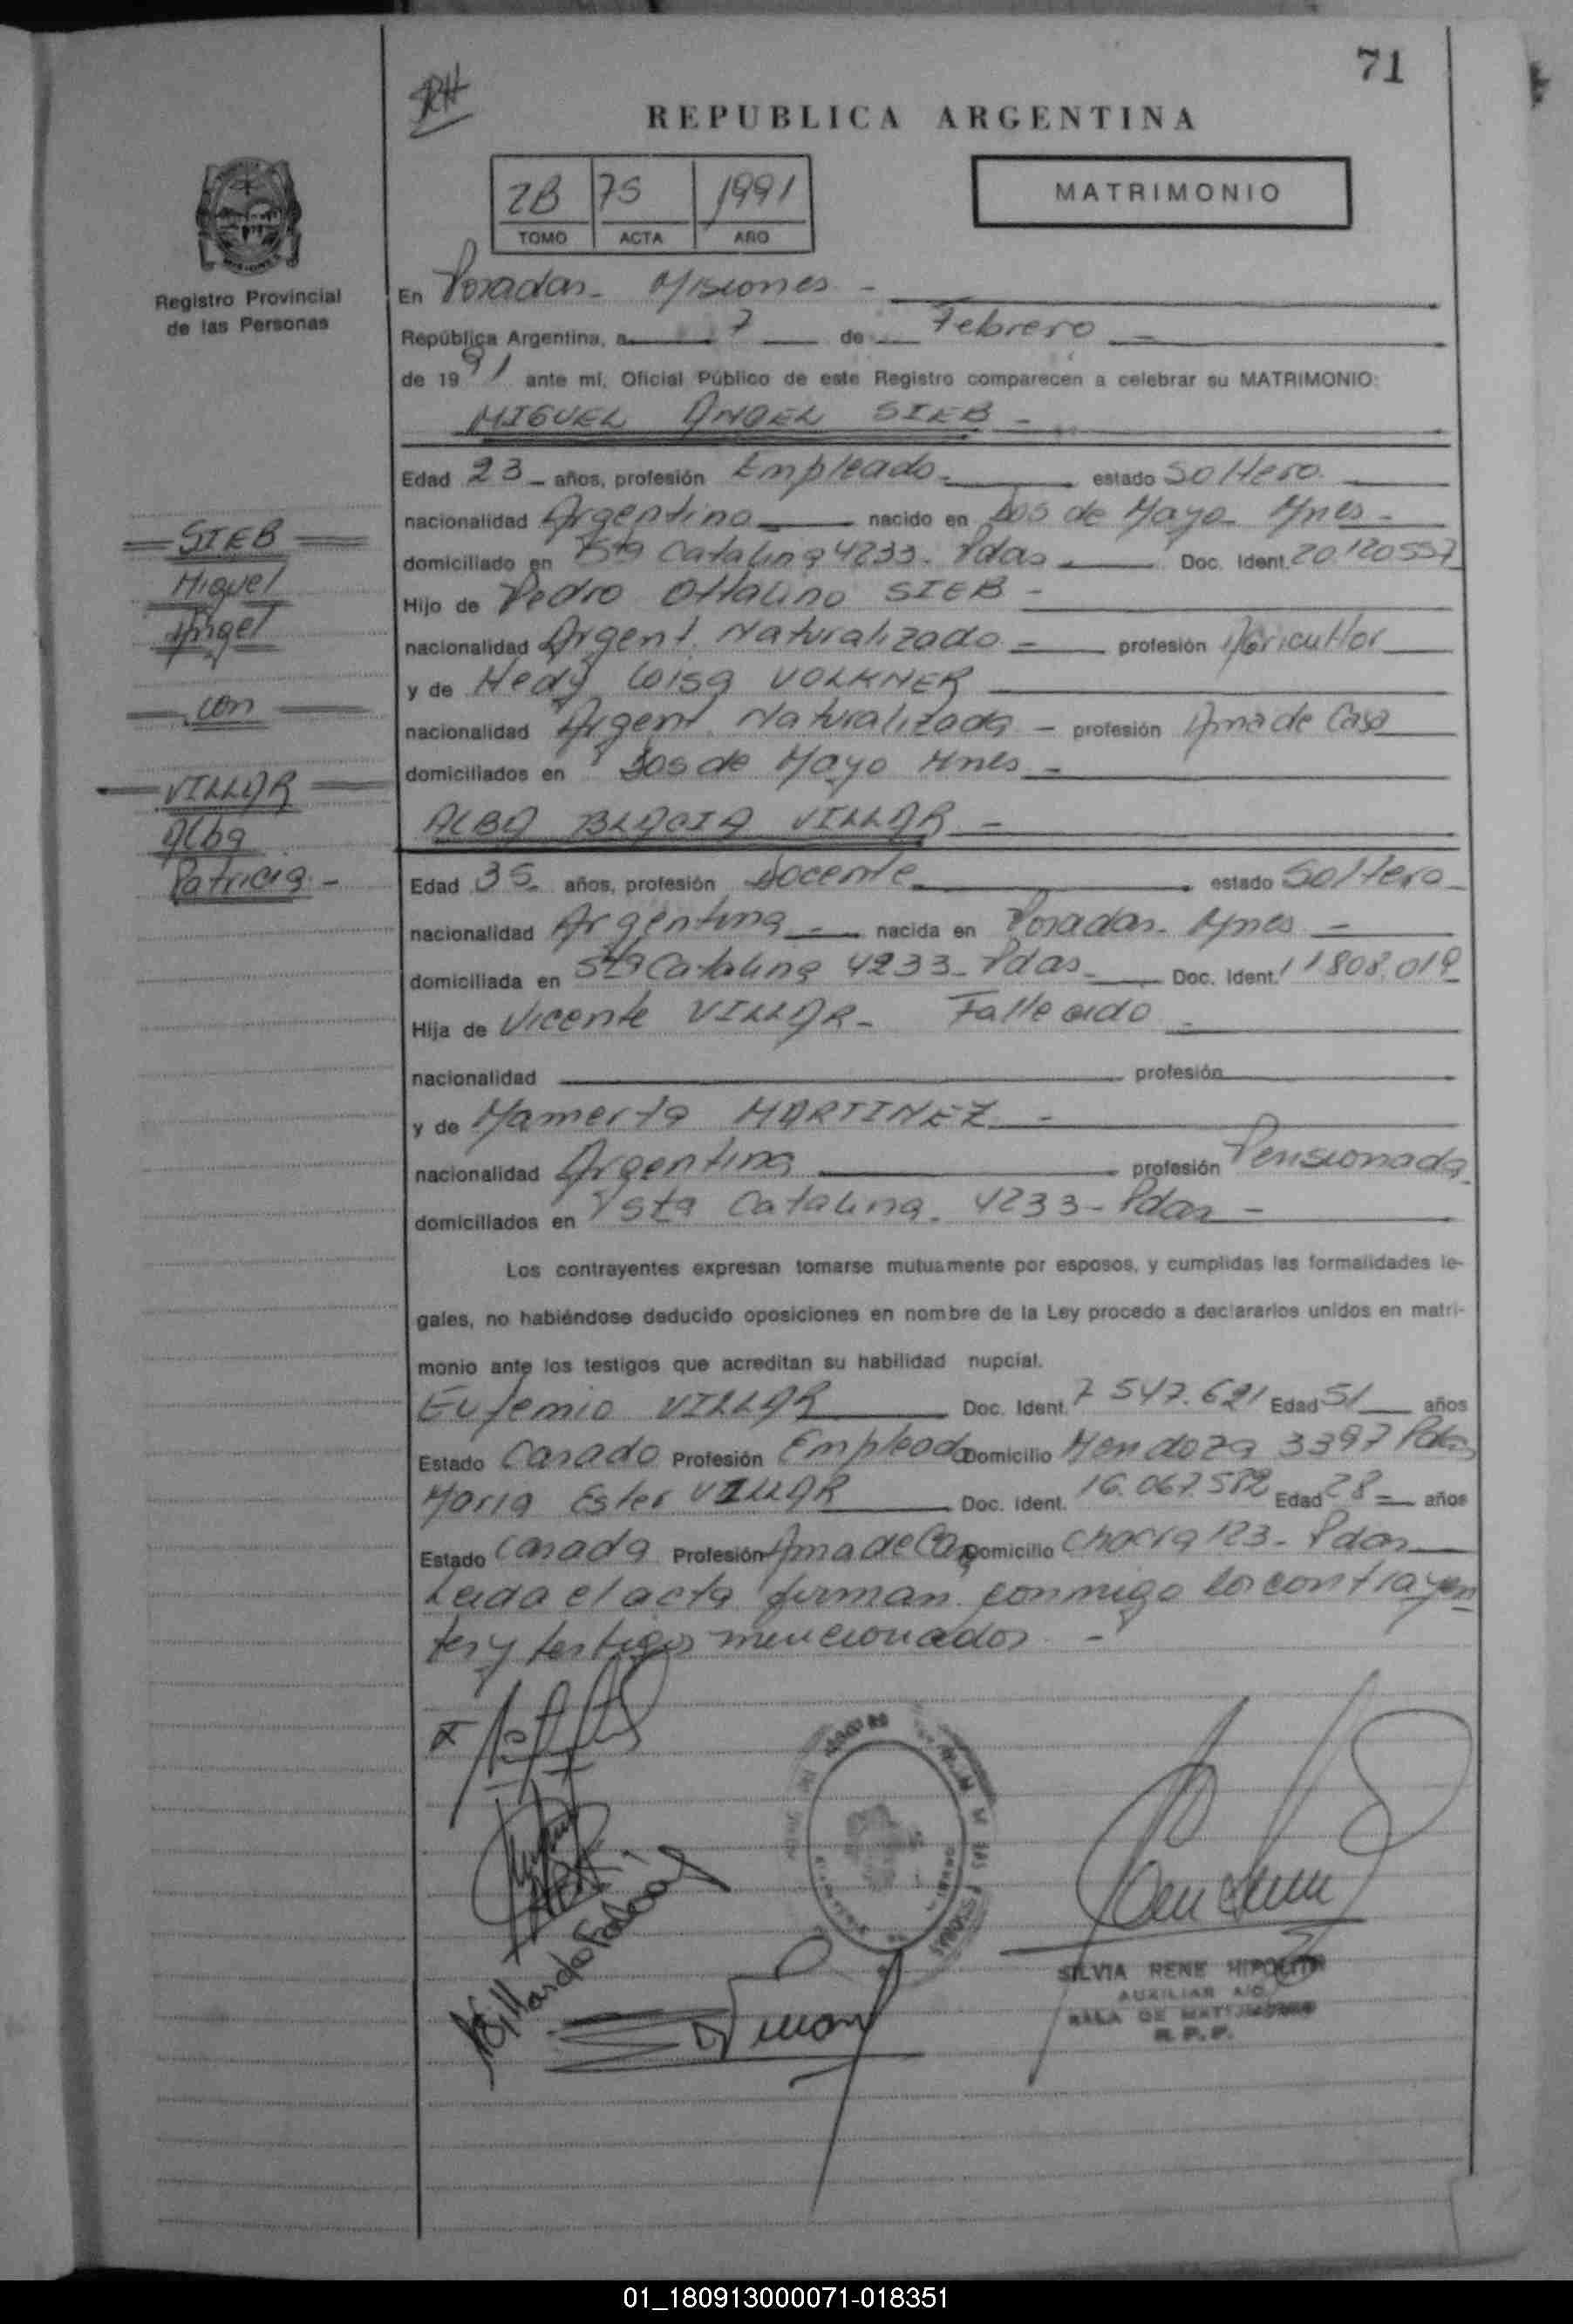 71
REPUBLICA ARGENTINA
2B 75 1991
TOMO ACTA AÑO
MATRIMONIO
Registro Provincial
de las Personas
En Posadas - Misiones -
República Argentina, a 7 de Febrero
de 1991 ante mí, Oficial Público de este Registro comparecen a celebrar su MATRIMONIO:
MIGUEL ANGEL SIEB -
Edad 23 - años, profesión Empleado - estado Soltero.
nacionalidad Argentina nacido en Dos de Mayo - Mnes -
domiciliado en Sta Catalina 4233 - Pdas Doc. Ident. 20.120.557
Hijo de Pedro Ottalino SIEB -
nacionalidad Argent. Naturalizado - profesión Agricultor
y de Hedy Loisa VOLKNER
nacionalidad Argent. Naturalizada - profesión Ama de Casa
domiciliados en Dos de Mayo Mnes -
SIEB
Miguel
Angel
con
VILLAR
Alba
Patricia -
ALBA VILLAR -
Edad 35 años, profesión Docente estado Soltera
nacionalidad Argentina - nacida en Posadas - Mnes -
domiciliada en Sta Catalina 4233 - Pdas - Doc. Ident. 11.808.019
Hija de Vicente VILLAR - Fallecido -
nacionalidad profesión
y de Mamerta MARTINEZ -
nacionalidad Argentina profesión Pensionada
domiciliados en Sta Catalina. 4233 - Pdas -
Los contrayentes expresan tomarse mutuamente por esposos, y cumplidas las formalidades le-
gales, no habiéndose deducido oposiciones en nombre de la Ley procedo a declararlos unidos en matri-
monio ante los testigos que acreditan su habilidad nupcial.
Eufemio VILLAR Doc. Ident. 7.547.621 Edad 51 años
Estado Casado Profesión Empleado Domicilio Mendoza 3397 Pdas
Maria Ester VILLAR Doc. Ident. 16.067.582 Edad 28 - años
Estado Casada Profesión Ama de Casa Domicilio Chacra 123 - Pdas
Leida el acta firman conmigo los contrayen
tes y testigos mencionados -
SILVIA RENE HIPOLITO
AUXILIAR A/C
SALA DE MATRIMONIO
R. P. P.
01_180913000071-018351